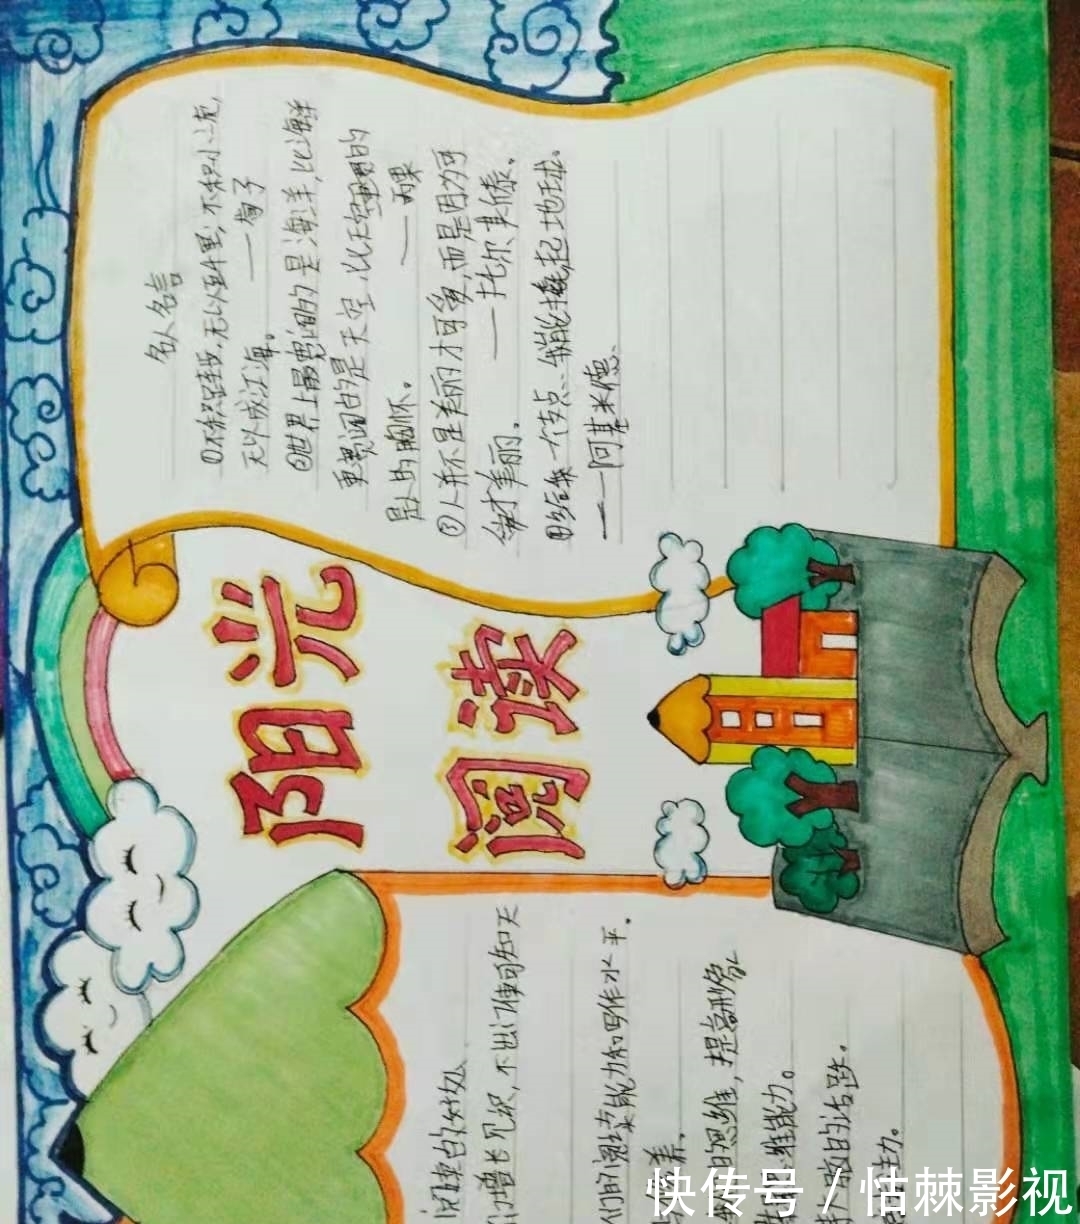 阳光
阅读
阅读的好处
们增长见识,不出门便可知天
们的阅读能力和写作水平。
养。
的思维,提高形象
维能力。
的话题。
力。
名人名言
①不积跬步,无以至千里;不积小流,
无以成江海。 ——荀子
②世界上最宽阔的是海洋,比海洋
更宽阔的是天空,比天空宽阔的
是人的胸怀。 ——雨果
③人并不是美丽才可爱,而是因为可
爱才美丽。 ——托尔斯泰。
④给我一个支点、我能撬起地球。
——阿基米德
快传号 / 怙棘影视